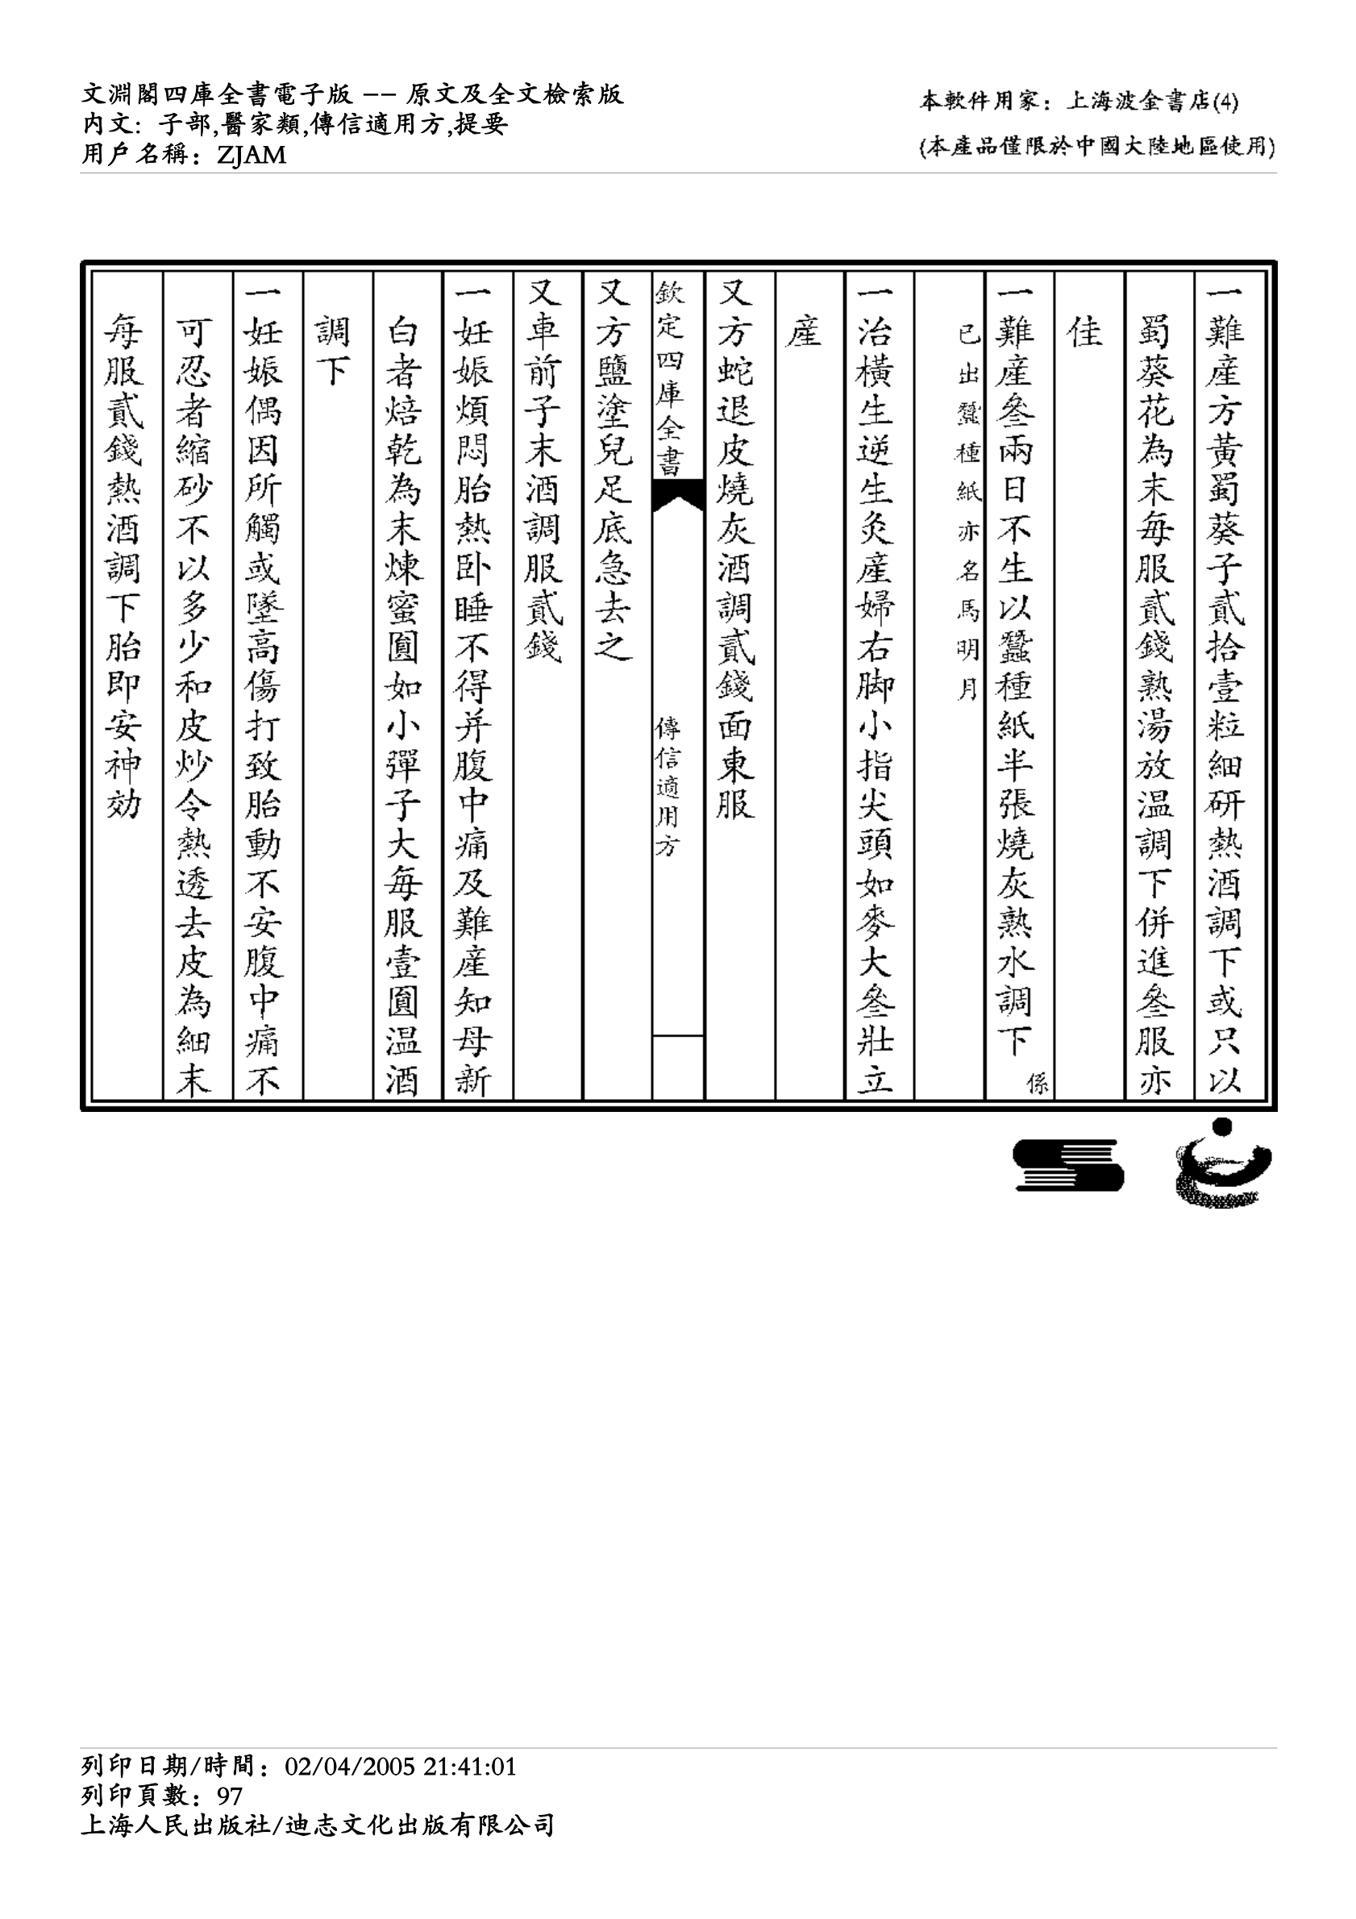 文淵閣四庫全書電子版 -- 原文及全文檢索版
内文: 子部,醫家類,傳信適用方,提要
用戶名稱: ZJAM
本軟件用家: 上海波金書店(4)
(本產品僅限於中國大陸地區使用)
一難産方黄蜀葵子貳拾壹粒細研熱酒調下或只以
蜀葵花為末每服貳錢熟湯放温調下併進叁服亦
佳
一難産叁兩日不生以蠶種紙半張燒灰熟水調下係
已出蠶種紙亦名馬明月
一治橫生逆生灸産婦右脚小指尖頭如麥大叁壯立
産
又方蛇退皮燒灰酒調貳錢面東服
欽定四庫全書
傳信適用方
又方鹽塗兒足底急去之
又車前子末酒調服貳錢
一妊娠煩悶胎熱卧睡不得并腹中痛及難産知母新
白者焙乾為末煉蜜圎如小彈子大每服壹圎温酒
調下
一妊娠偶因所觸或墜高傷打致胎動不安腹中痛不
可忍者縮砂不以多少和皮炒令熱透去皮為細末
每服貳錢熱酒調下胎即安神効
列印日期/時間: 02/04/2005 21:41:01
列印頁數: 97
上海人民出版社/迪志文化出版有限公司